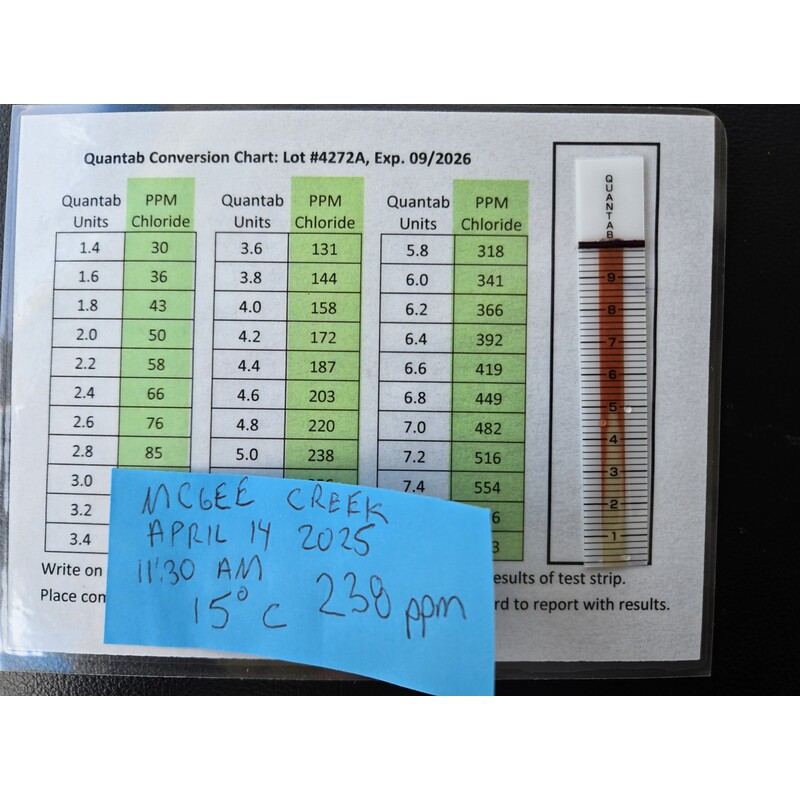 Quantab Conversion Chart: Lot #4272A, Exp. 09/2026
Quantab Units PPM Chloride Quantab Units PPM Chloride Quantab Units PPM Chloride
1.4 30 3.6 131 5.8 318
1.6 36 3.8 144 6.0 341
1.8 43 4.0 158 6.2 366
2.0 50 4.2 172 6.4 392
2.2 58 4.4 187 6.6 419
2.4 66 4.6 203 6.8 449
2.6 76 4.8 220 7.0 482
2.8 85 5.0 238 7.2 516
3.0 7.4 554
3.2
3.4
Write on
esults of test strip.
Place
rd to report with results.
MCGEE CREEK
APRIL 14 2025
11:30 AM
15° C 238 ppm
QUANTAB
9
8
7
6
5
4
3
2
1